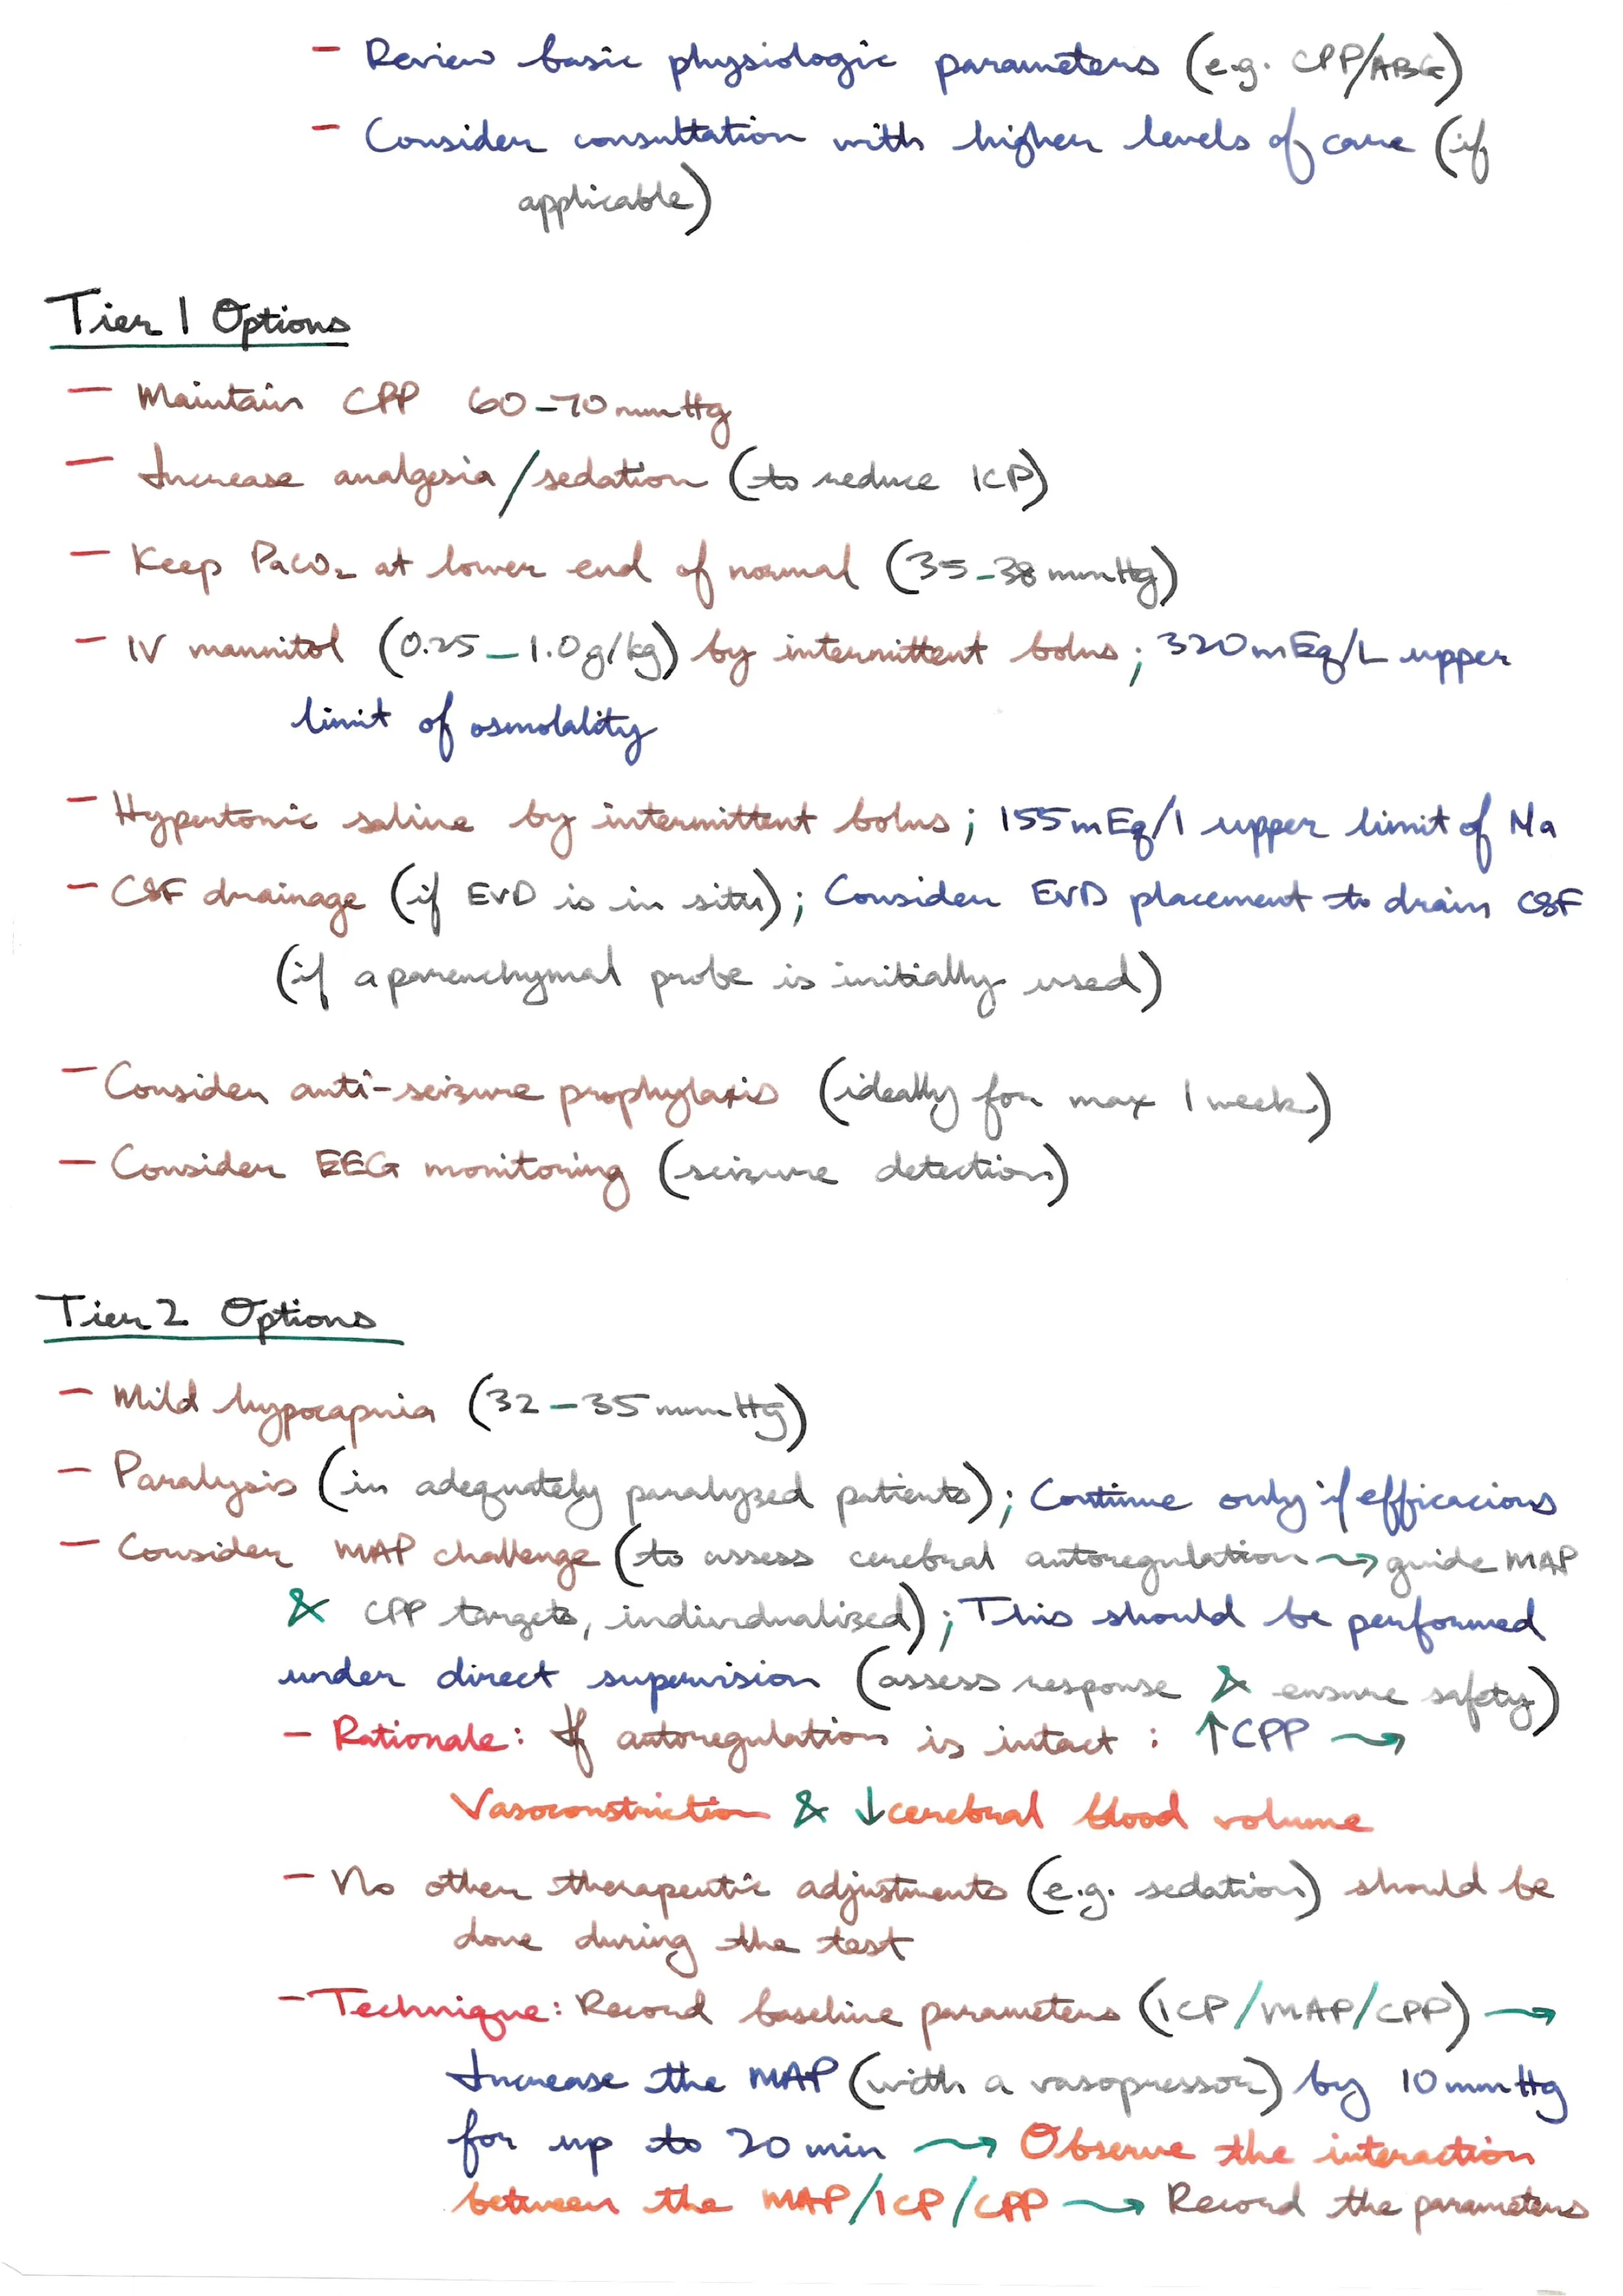 – Review basic physiologic parameters (e.g. CPP/ABG)
– Consider consultation with higher levels of care (if
applicable)
Tier 1 Options
– Maintain CPP 60–70mmHg
– Increase analgesia/sedation (to reduce ICP)
– Keep PaCO₂ at lower end of normal (35–38mmHg)
– IV mannitol (0.25–1.0g/kg) by intermittent bolus; 320mEq/L upper
limit of osmolality
– Hypertonic saline by intermittent bolus; 155mEq/l upper limit of Na
– CSF drainage (if EVD is in situ); Consider EVD placement to drain CSF
(if a parenchymal probe is initially used)
– Consider anti-seizure prophylaxis (ideally for max 1 week)
– Consider EEG monitoring (seizure detection)
Tier 2 Options
– Mild hypocapnia (32–35mmHg)
– Paralysis (in adequately paralyzed patients); Continue only if efficacious
– Consider MAP challenge (to assess cerebral autoregulation → guide MAP
& CPP targets, individualized); This should be performed
under direct supervision (assess response & ensure safety)
– Rationale: If autoregulation is intact : ↑CPP →
Vasoconstriction & ↓cerebral blood volume
– No other therapeutic adjustments (e.g. sedation) should be
done during the test
– Technique: Record baseline parameters (ICP/MAP/CPP) →
Increase the MAP (with a vasopressor) by 10mmHg
for up to 20 min → Observe the interaction
between the MAP/ICP/CPP → Record the parameters